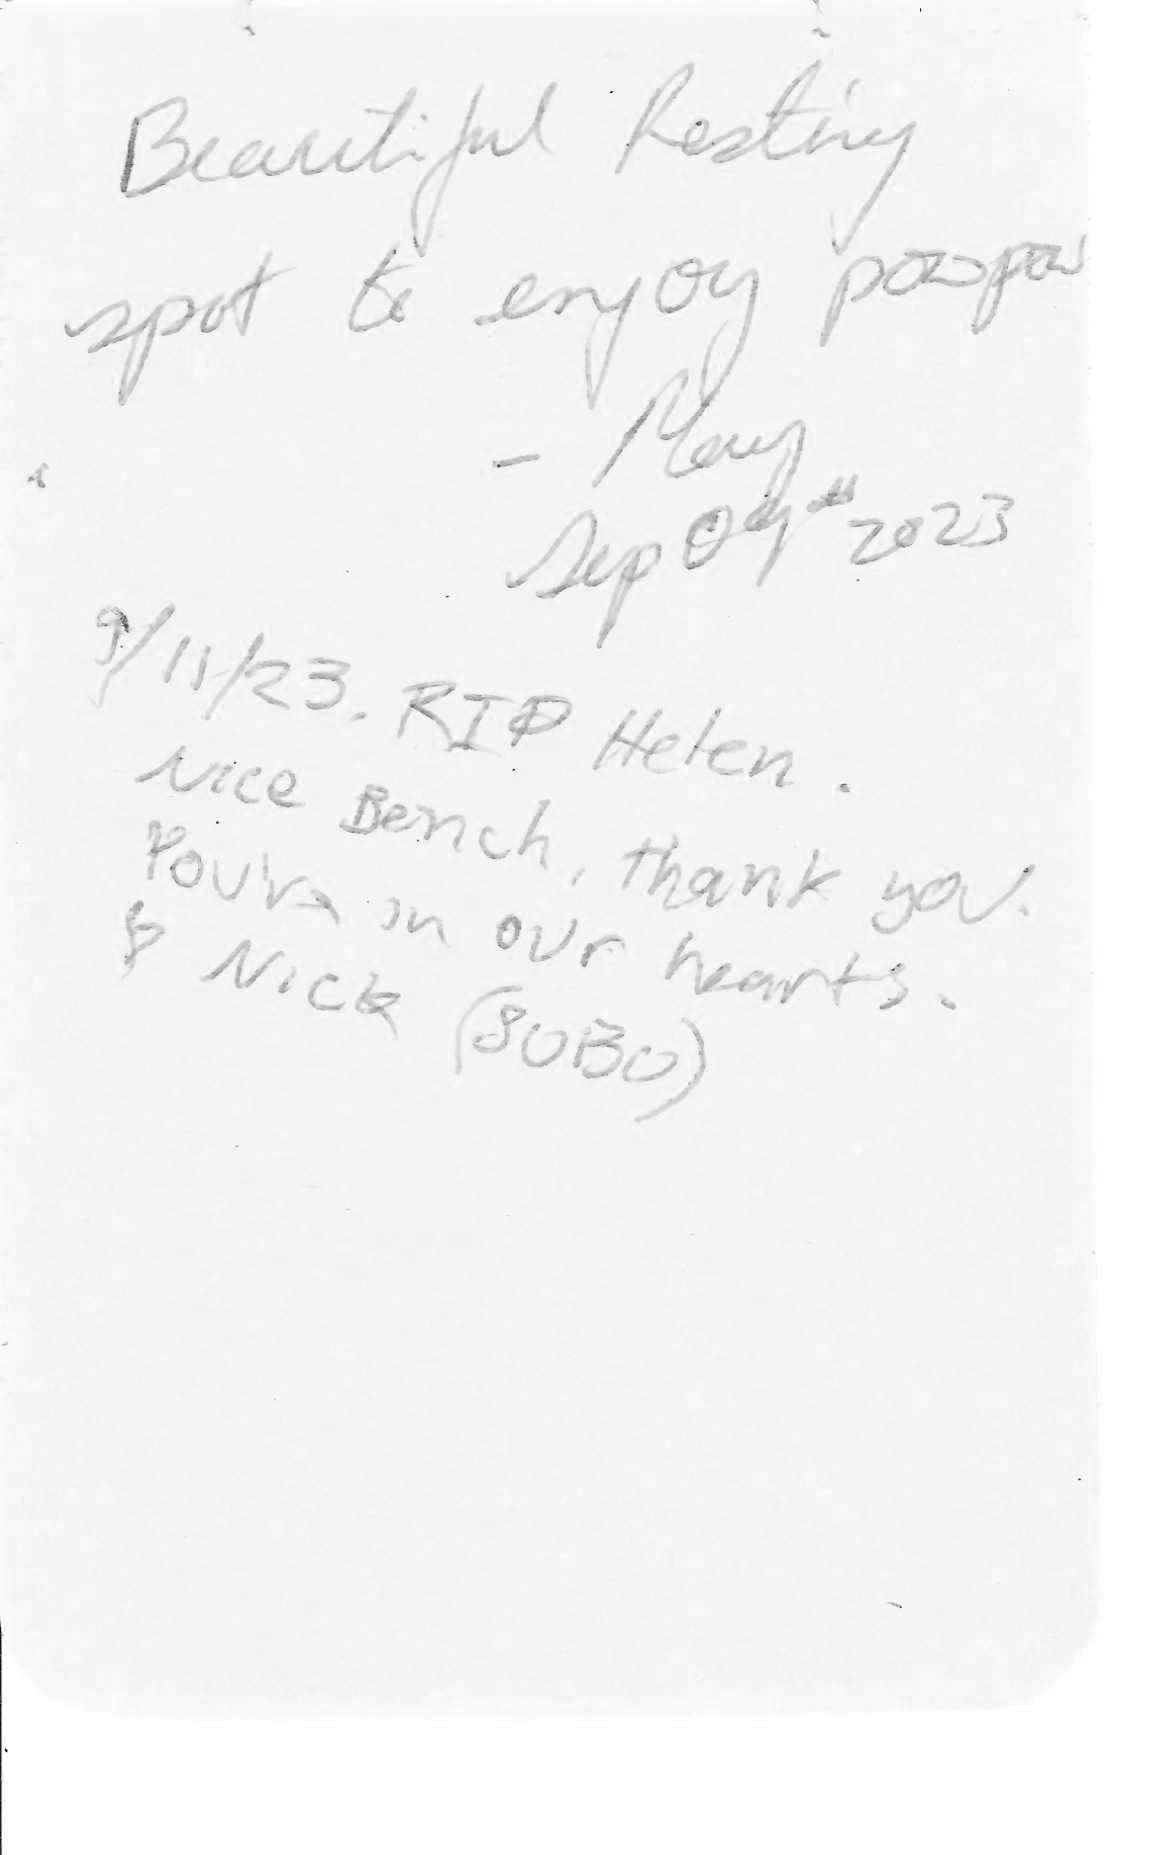 Beautiful Resting
spot to enjoy pawpaw
- Mary
Sep 09th 2023
9/11/23. RIP Helen.
Nice Bench, thank you.
You're in our hearts.
Nick (SOBO)